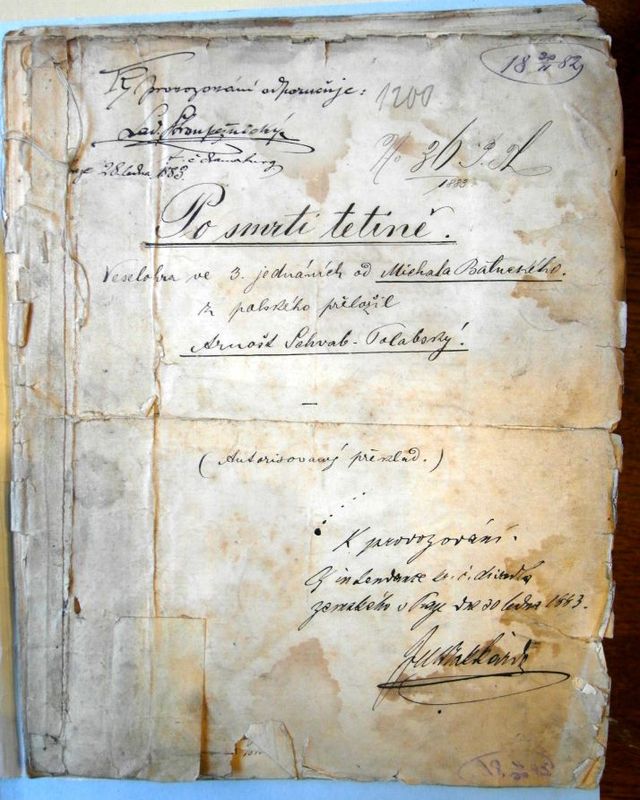 18 30/XI 82
K provozování odporučuje:
Lad. Stroupežnický
dramaturg
28. ledna 1883
1200
No 36 
1883
Po smrti tetině.
Veselohra ve 3. jednáních od Michala Bałuckého.
z polského přeložil
Arnošt Schwab-Polabský.
(Autorisovaný překlad.)
K provozování.
Z intendance kr. č. divadla
zemského v Praze dne 30 ledna 1883.